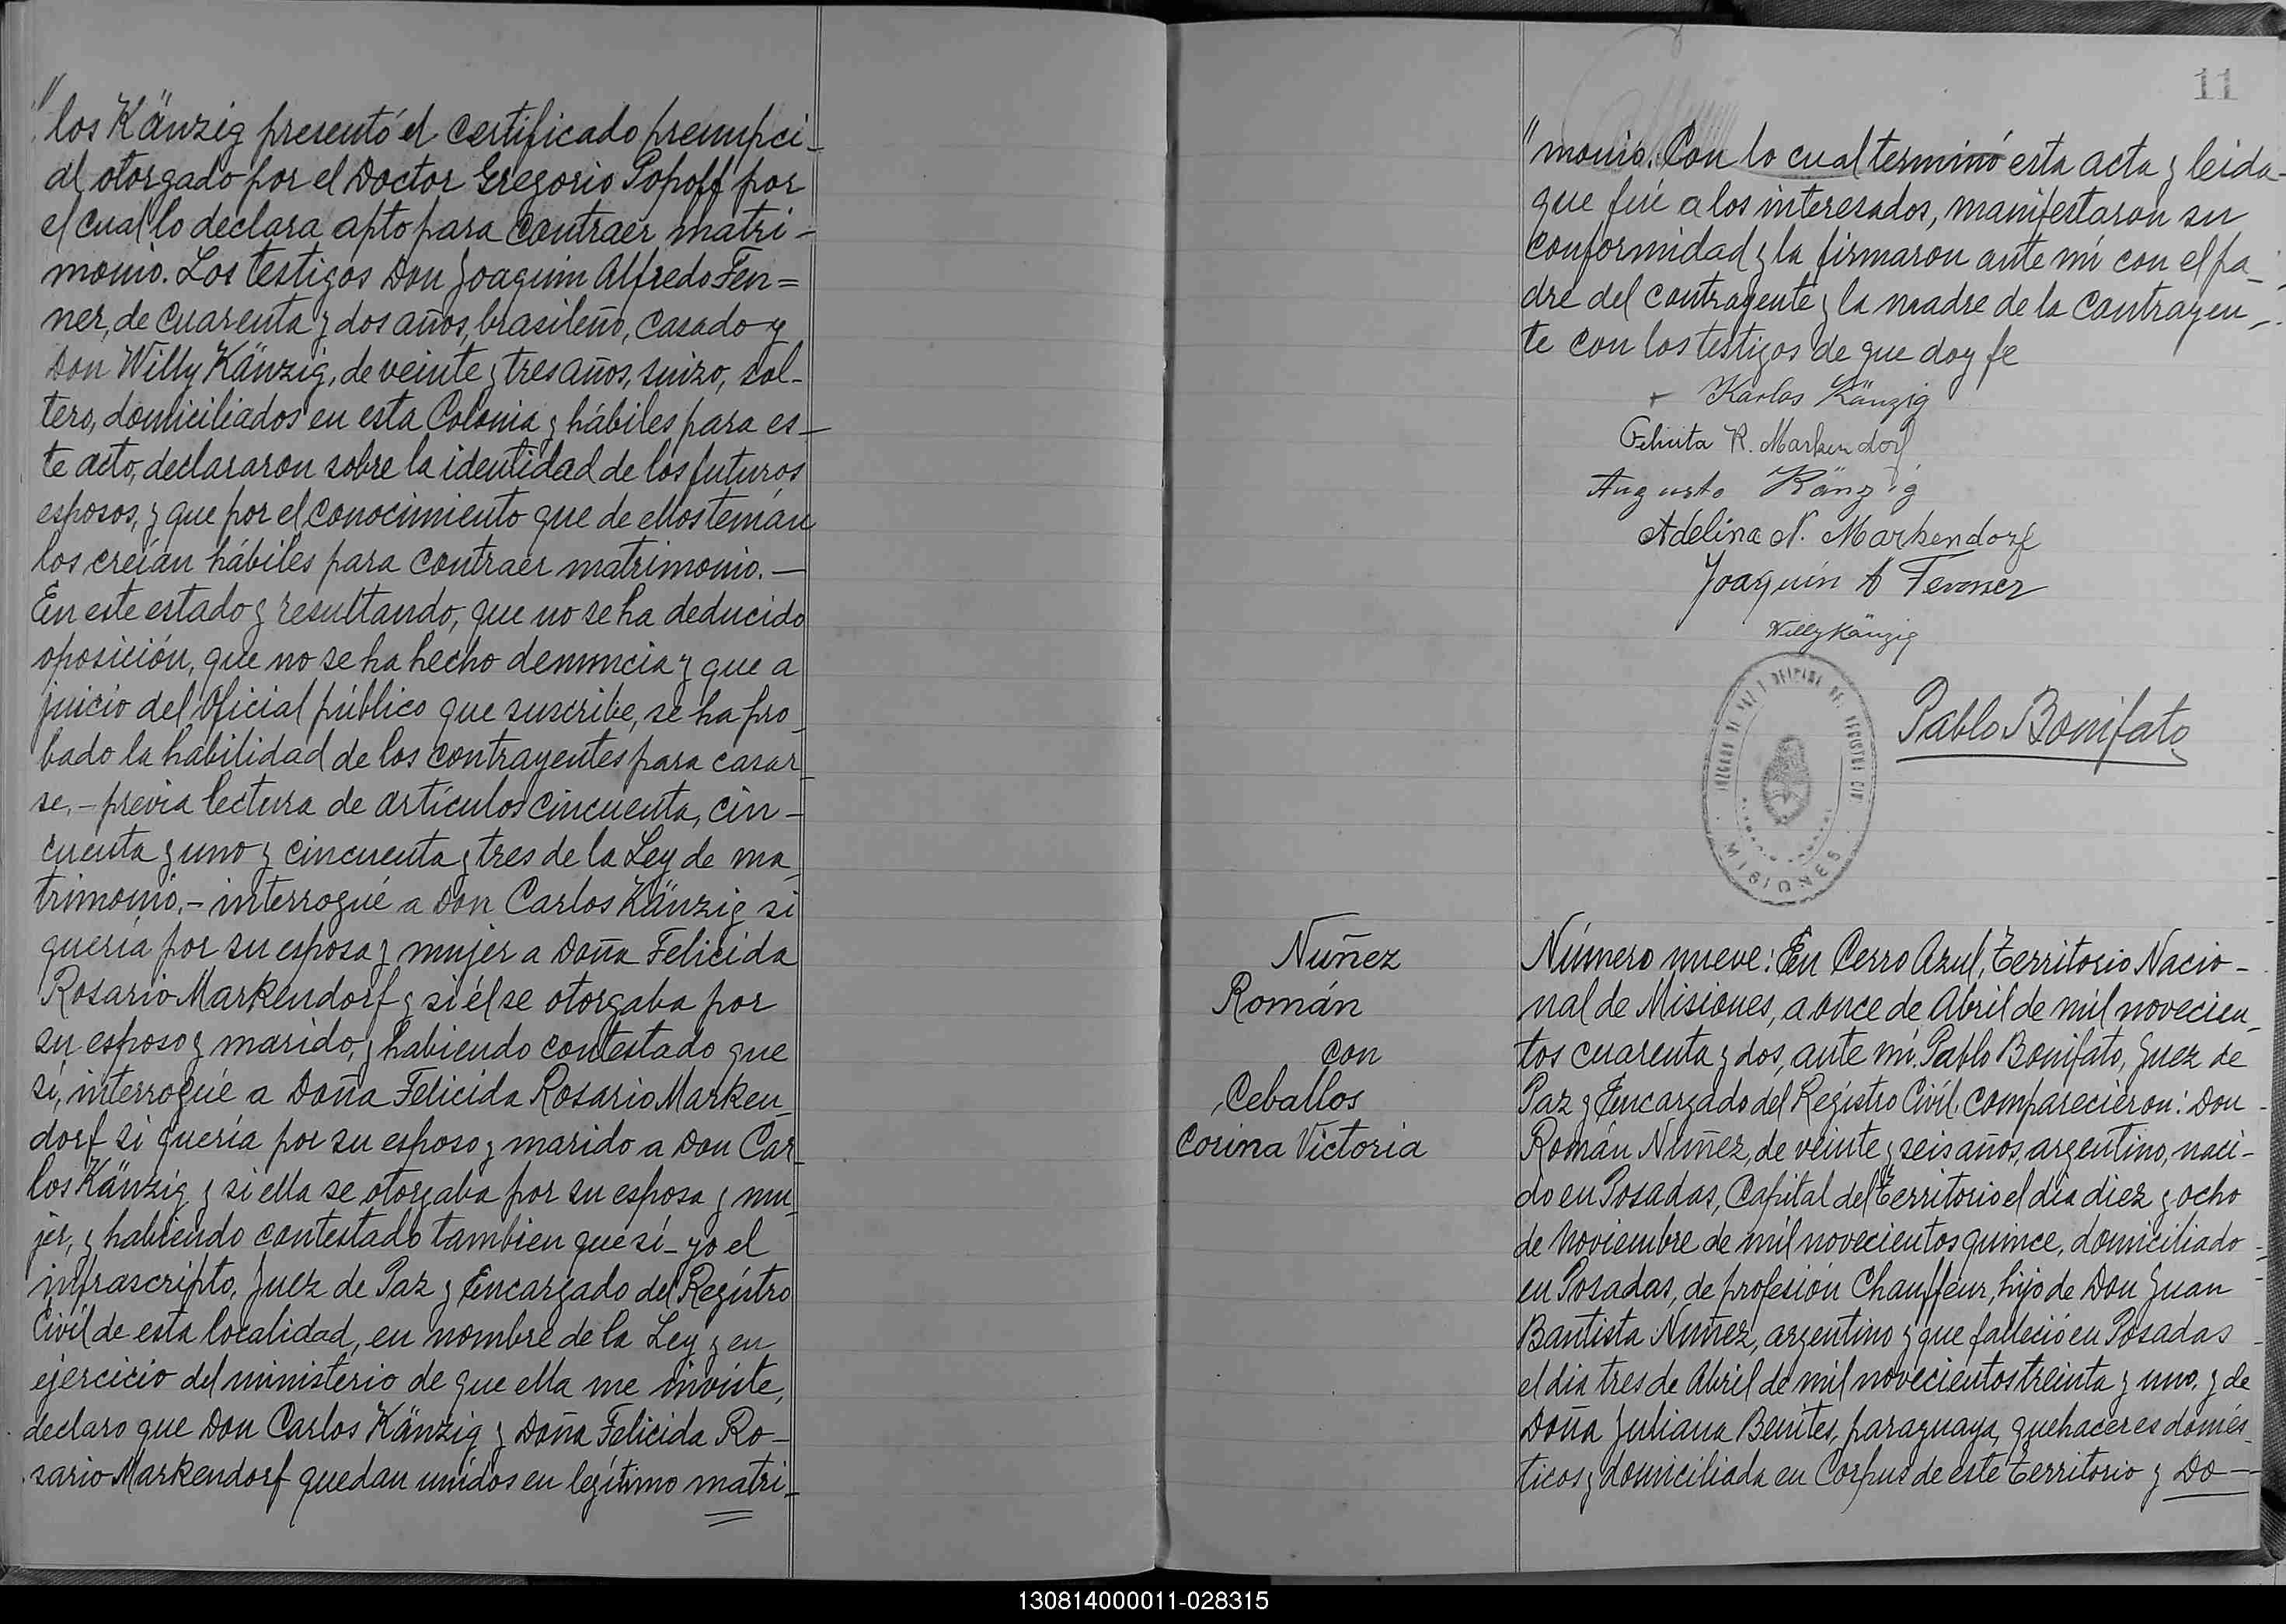 "los Känzig presentó el certificado prenupci-
al otorgado por el Doctor Gregorio Popoff por
el cual lo declara apto para contraer matri-
monio. Los testigos Don Joaquin Alfredo Fen=
ner, de cuarenta y dos años, brasileño, casado y
Don Willy Känzig, de veinte y tres años, suizo, sol-
tero, domiciliados en esta Colonia y hábiles para es-
te acto, declararon sobre la identidad de los futuros
esposos, y que por el conocimiento que de ellos tenían
los creían hábiles para contraer matrimonio.—
En este estado y resultando, que no se ha deducido
oposición, que no se ha hecho denuncia y que a
juicio del oficial público que suscribe, se ha pro-
bado la habilidad de los contrayentes para casar-
se,- previa lectura de artículos cincuenta, cin-
cuenta y uno y cincuenta y tres de la Ley de ma-
trimonio,- interrogué a Don Carlos Känzig si
quería por su esposa y mujer a Doña Felicida
Rosario Markendorf y si él se otorgaba por
su esposo y marido, y habiendo contestado que
sí, interrogué a Doña Felicida Rosario Marken-
dorf si quería por su esposo y marido a Don Car-
los Känzig y si ella se otorgaba por su esposa y mu-
jer, y habiendo contestado tambien que sí- yo el
infrascripto, Juez de Paz y Encargado del Registro
Civil de esta localidad, en nombre de la Ley y en
ejercicio del ministerio de que ella me inviste,
declaro que Don Carlos Känzig y Doña Felicida Ro-
sario Markendorf quedan unidos en legítimo matri-
11
"monio. Con lo cual terminó esta acta y leida
que fué a los interesados, manifestaron su
conformidad y la firmaron ante mí con el pa-
dre del contrayente y la madre de la contrayen-
te con los testigos de que doy fe
Karlos Känzig
Felicita R. Markendorf
Augusto Känzig
Adelina N. Markendorf
Joaquín A Fenner
Willy Känzig
Pablo Bonifato
JUZGADO DE PAZ Y OFICINA DEL REGISTRO CIVIL
MISIONES
Nuñez
Román
con
Ceballos
Corina Victoria
Número nueve: En Cerro Azul, Territorio Nacio-
nal de Misiones, a once de Abril de mil novecien-
tos cuarenta y dos, ante mí Pablo Bonifato, Juez de
Paz y Encargado del Registro Civil, comparecieron: Don
Román Nuñez, de veinte y seis años, argentino, naci-
do en Posadas, Capital del Territorio el día diez y ocho
de Noviembre de mil novecientos quince, domiciliado
en Posadas, de profesión Chauffeur, hijo de Don Juan
Bautista Nuñez, argentino y que falleció en Posadas
el día tres de Abril de mil novecientos treinta y uno, y de
Doña Juliana Benítes, paraguaya, quehaceres domés-
ticos, domiciliada en Corpus de este Territorio y Do—
130814000011-028315